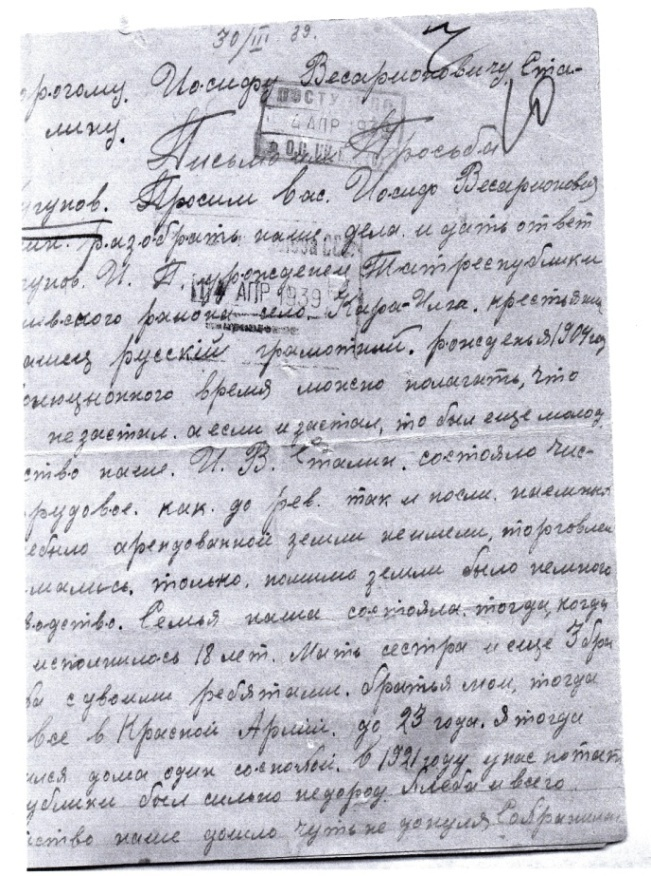 30/III 39.
орогому. Иосифу Весарионовичу. Ста-
лину.
ПОСТУПИЛО
4 АПР 1939
Письмо Просьба
гунов. Просим вас. Иосиф Весарионович
лин. разобрать наше дела. и дать ответ
гунов. И. П. урожденец Татреспублики
11 АПР 1939
ивского района село. Кара-Илга. крестьянин
русскій грамотный. рожденья 1904 год
люцыонного время можно полагать, что
незастил. а если и застал, то был еще молод
ство наше. И. В. Сталин. состояло чис-
рудовое. как. до рев. так и посли. наемных
ебыло арендованной земли неимели, торговлей
мались. только. помимо земли было немного
водство. Семья наша состояла. тогда, когда
исполнилось 18 лет. Мать сестра и еще 3 бра
ба с своими ребятами. братья мои, тогда
все в Красной Армии. до 23 года. я тогда
лся дома один со снохой. в 1921 году у нас по тат
ублики был сильно недород. хлеба и всего
йство наше дошло чуть не до нуля